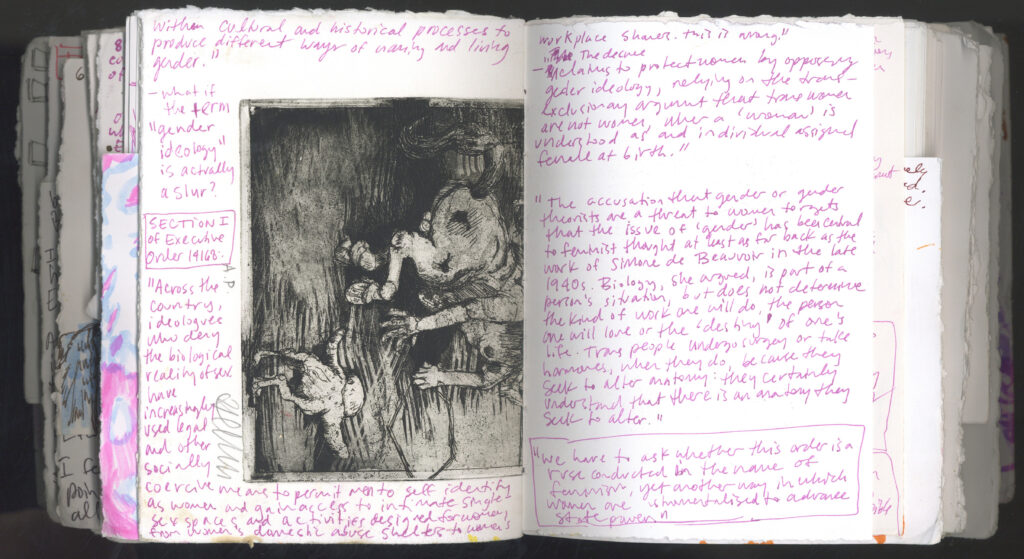 within cultural and historical processes to
produce different ways of naming and living
gender."
- what if
the term
"gender
ideology"
is actually
a slur?
SECTION I
of Executive
Order 14168.
"Across the
country,
ideologues
who deny
the biological
reality of sex
have
increasingly
used legal
and other
socially
coercive means to permit men to self identify
as women and gain access to intimate single
sex spaces and activities designed for women,
from women's domestic abuse shelters to women's
A.P.
workplace showers. this is wrong."
The decree
- claims to protect women by opposing
gender ideology, relying on the trans-
exclusionary argument that trans women
are not women when a 'woman' is
understood as and individual assigned
female at birth."
"The accusation that gender or gender
theorists are a threat to women forgets
that the issue of 'gender' has been central
to feminist thought at least as far back as the
work of Simone de Beauvoir in the late
1940s. Biology, she argued, is part of a
person's situation, but does not determine
the kind of work one will do, the person
one will love or the 'destiny' of one's
life. Trans people undergo surgery or take
hormones, when they do, because they
seek to alter anatomy: they certainly
understand that there is an anatomy they
seek to alter."
"we have to ask whether this order is a
ruse conducted in the name of
feminism, yet another way in which
women are instrumentalised to advance
state power"